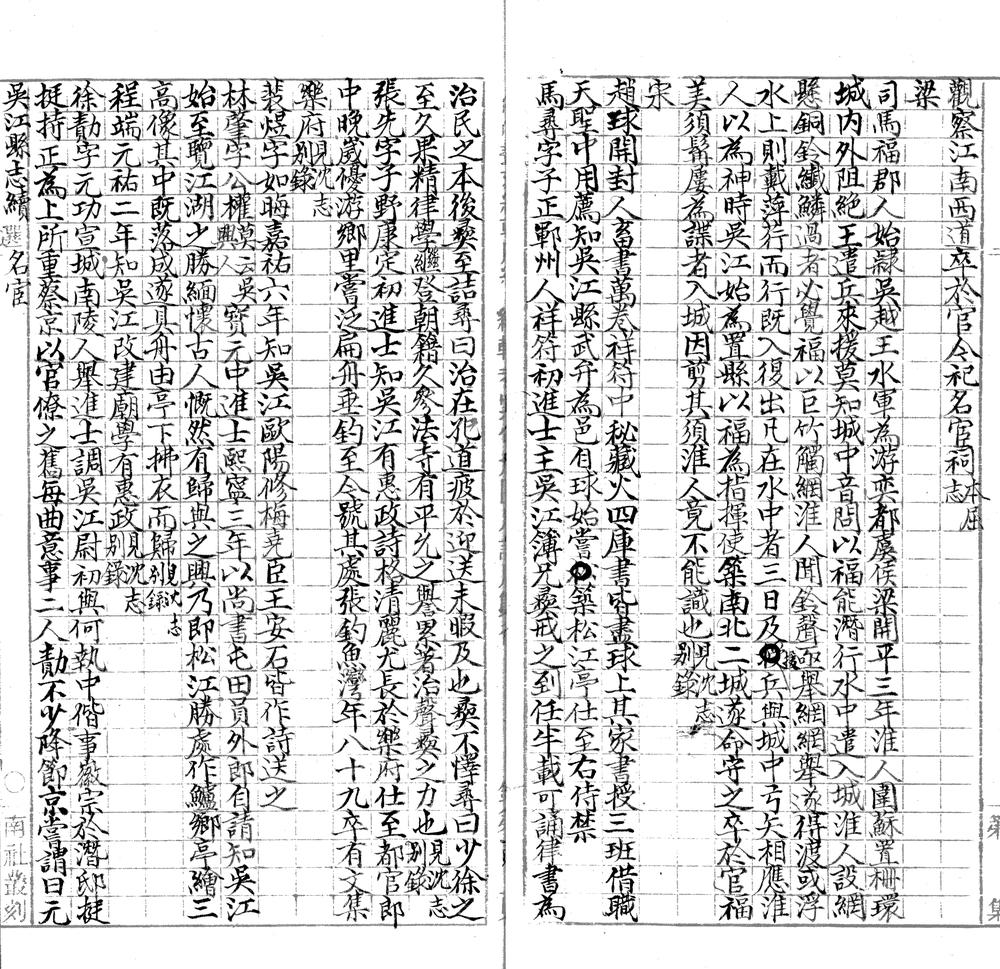 觀察江南西道卒於官令祀名宦祠本屈志
梁
司馬福郡人始隸吳越王水軍為游奕都虞侯梁開平三年淮人圍蘇置柵環
城內外阻絕王遣兵來援莫知城中音問以福能潛行水中遣入城淮人設網
懸銅鈴纖鱗過者必覺福以巨竹觸網淮人聞鈴聲亟舉網網舉遂得渡或浮
水上則戴萍荇而行既入復出凡在水中者三日及援兵與城中弓矢相應淮
人以為神時吳江始為置縣以福為指揮使築南北二城遂命守之卒於官福
美須髯屢為諜者入城因剪其須淮人竟不能識也見沈志別錄
宋
趙球開封人畜書萬卷祥符中秘藏火四庫書皆盡球上其家書授三班借職
天聖中用薦知吳江縣武弁為邑自球始嘗築松江亭仕至右侍禁
馬尋字子正鄆州人祥符初進士主吳江簿兄彛戒之到任半載可誦律書為
治民之本後彛至詰尋曰治在孔道疲於迎送未暇及也彛不懌尋曰少徐之
至久果精律學繼登朝籍久參法寺有平允之譽累著治聲彛之力也見沈志別錄
張先字子野康定初進士知吳江有惠政詩格清麗尤長於樂府仕至都官郎
中晚歲優游鄉里嘗泛扁舟垂釣至今號其處張釣魚灣年八十九卒有文集
樂府見沈志別錄
裴煜字如晦嘉祐六年知吳江歐陽修梅堯臣王安石皆作詩送之
林肇字公權莫云吳興人寶元中進士熙寧三年以尚書屯田員外郎自請知吳江
始至覽江湖之勝緬懷古人慨然有歸與之興乃即松江勝處作鱸鄉亭繪三
高像其中既落成遂具舟由亭下拂衣而歸見沈志別錄
程端元祐二年知吳江改建廟學有惠政見沈志別錄
徐勣字元功宣城南陵人舉進士調吳江尉初與何執中偕事徽宗於潛邸挺
挺持正為上所重蔡京以官僚之舊每曲意事二人勣不少降節京嘗謂曰元
吳江縣志續 選 名宦
南社叢刻